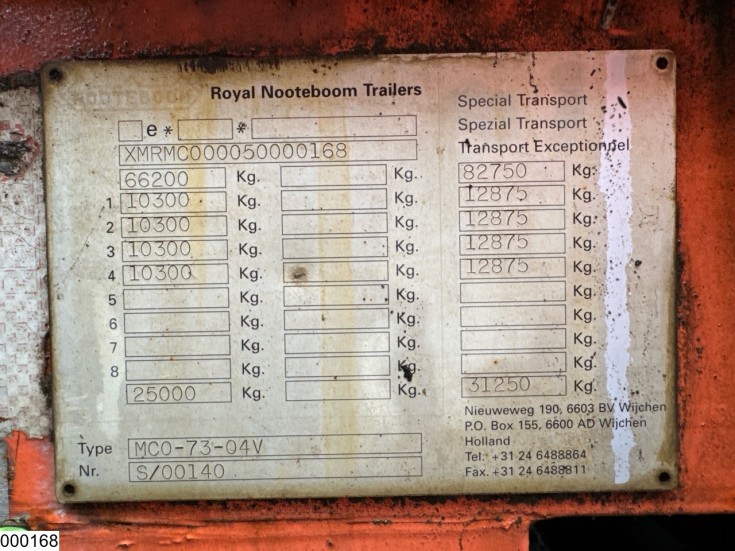 NOOTEBOOM
Royal Nooteboom Trailers
Special Transport
Spezial Transport
Transport Exceptionnel
e * *
XMRMC000050000168
66200 Kg. Kg. 82750 Kg.
1 10300 Kg. Kg. 12875 Kg.
2 10300 Kg. Kg. 12875 Kg.
3 10300 Kg. Kg. 12875 Kg.
4 10300 Kg. Kg. 12875 Kg.
5 Kg. Kg. Kg.
6 Kg. Kg. Kg.
7 Kg. Kg. Kg.
8 Kg. Kg. Kg.
25000 Kg. Kg. 31250 Kg.
Type MCO-73-04V
Nr. S/00140
Nieuweweg 190, 6603 BV Wijchen
P.O. Box 155, 6600 AD Wijchen
Holland
Tel. +31 24 6488864
Fax. +31 24 6488811
000168